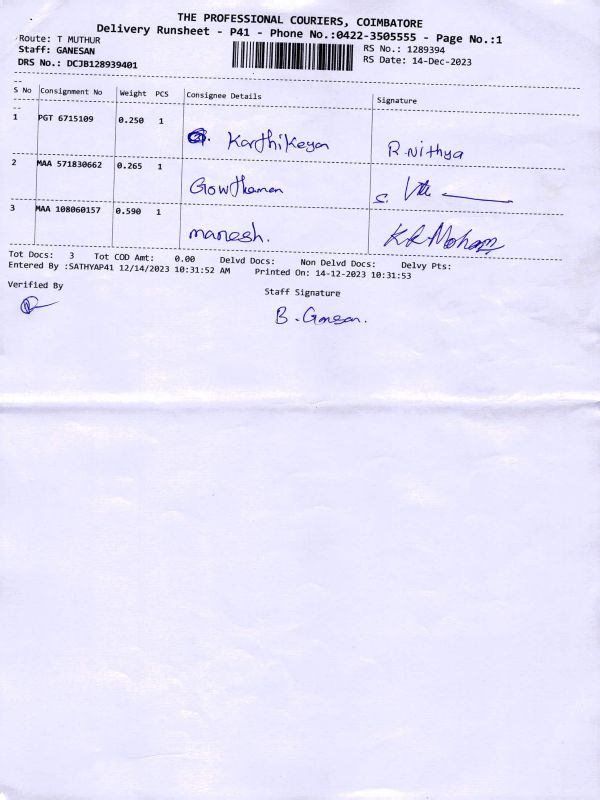 THE PROFESSIONAL COURIERS, COIMBATORE
Delivery Runsheet - P41 - Phone No.:0422-3505555 - Page No.:1
Route: T MUTHUR RS No.: 1289394
Staff: GANESAN RS Date: 14-Dec-2023
DRS No.: DCJB128939401
S No Consignment No Weight PCS Consignee Details Signature
1 PGT 6715109 0.250 1
Karthikeyan R.Nithya
2 MAA 571830662 0.265 1
Gowthaman S.
3 MAA 108060157 0.590 1
manesh. K.R.Mohan
Tot Docs: 3 Tot COD Amt: 0.00 Delvd Docs: Non Delvd Docs: Delvy Pts:
Entered By :SATHYAP41 12/14/2023 10:31:52 AM Printed On: 14-12-2023 10:31:53
Verified By
Staff Signature
B. Ganesan.